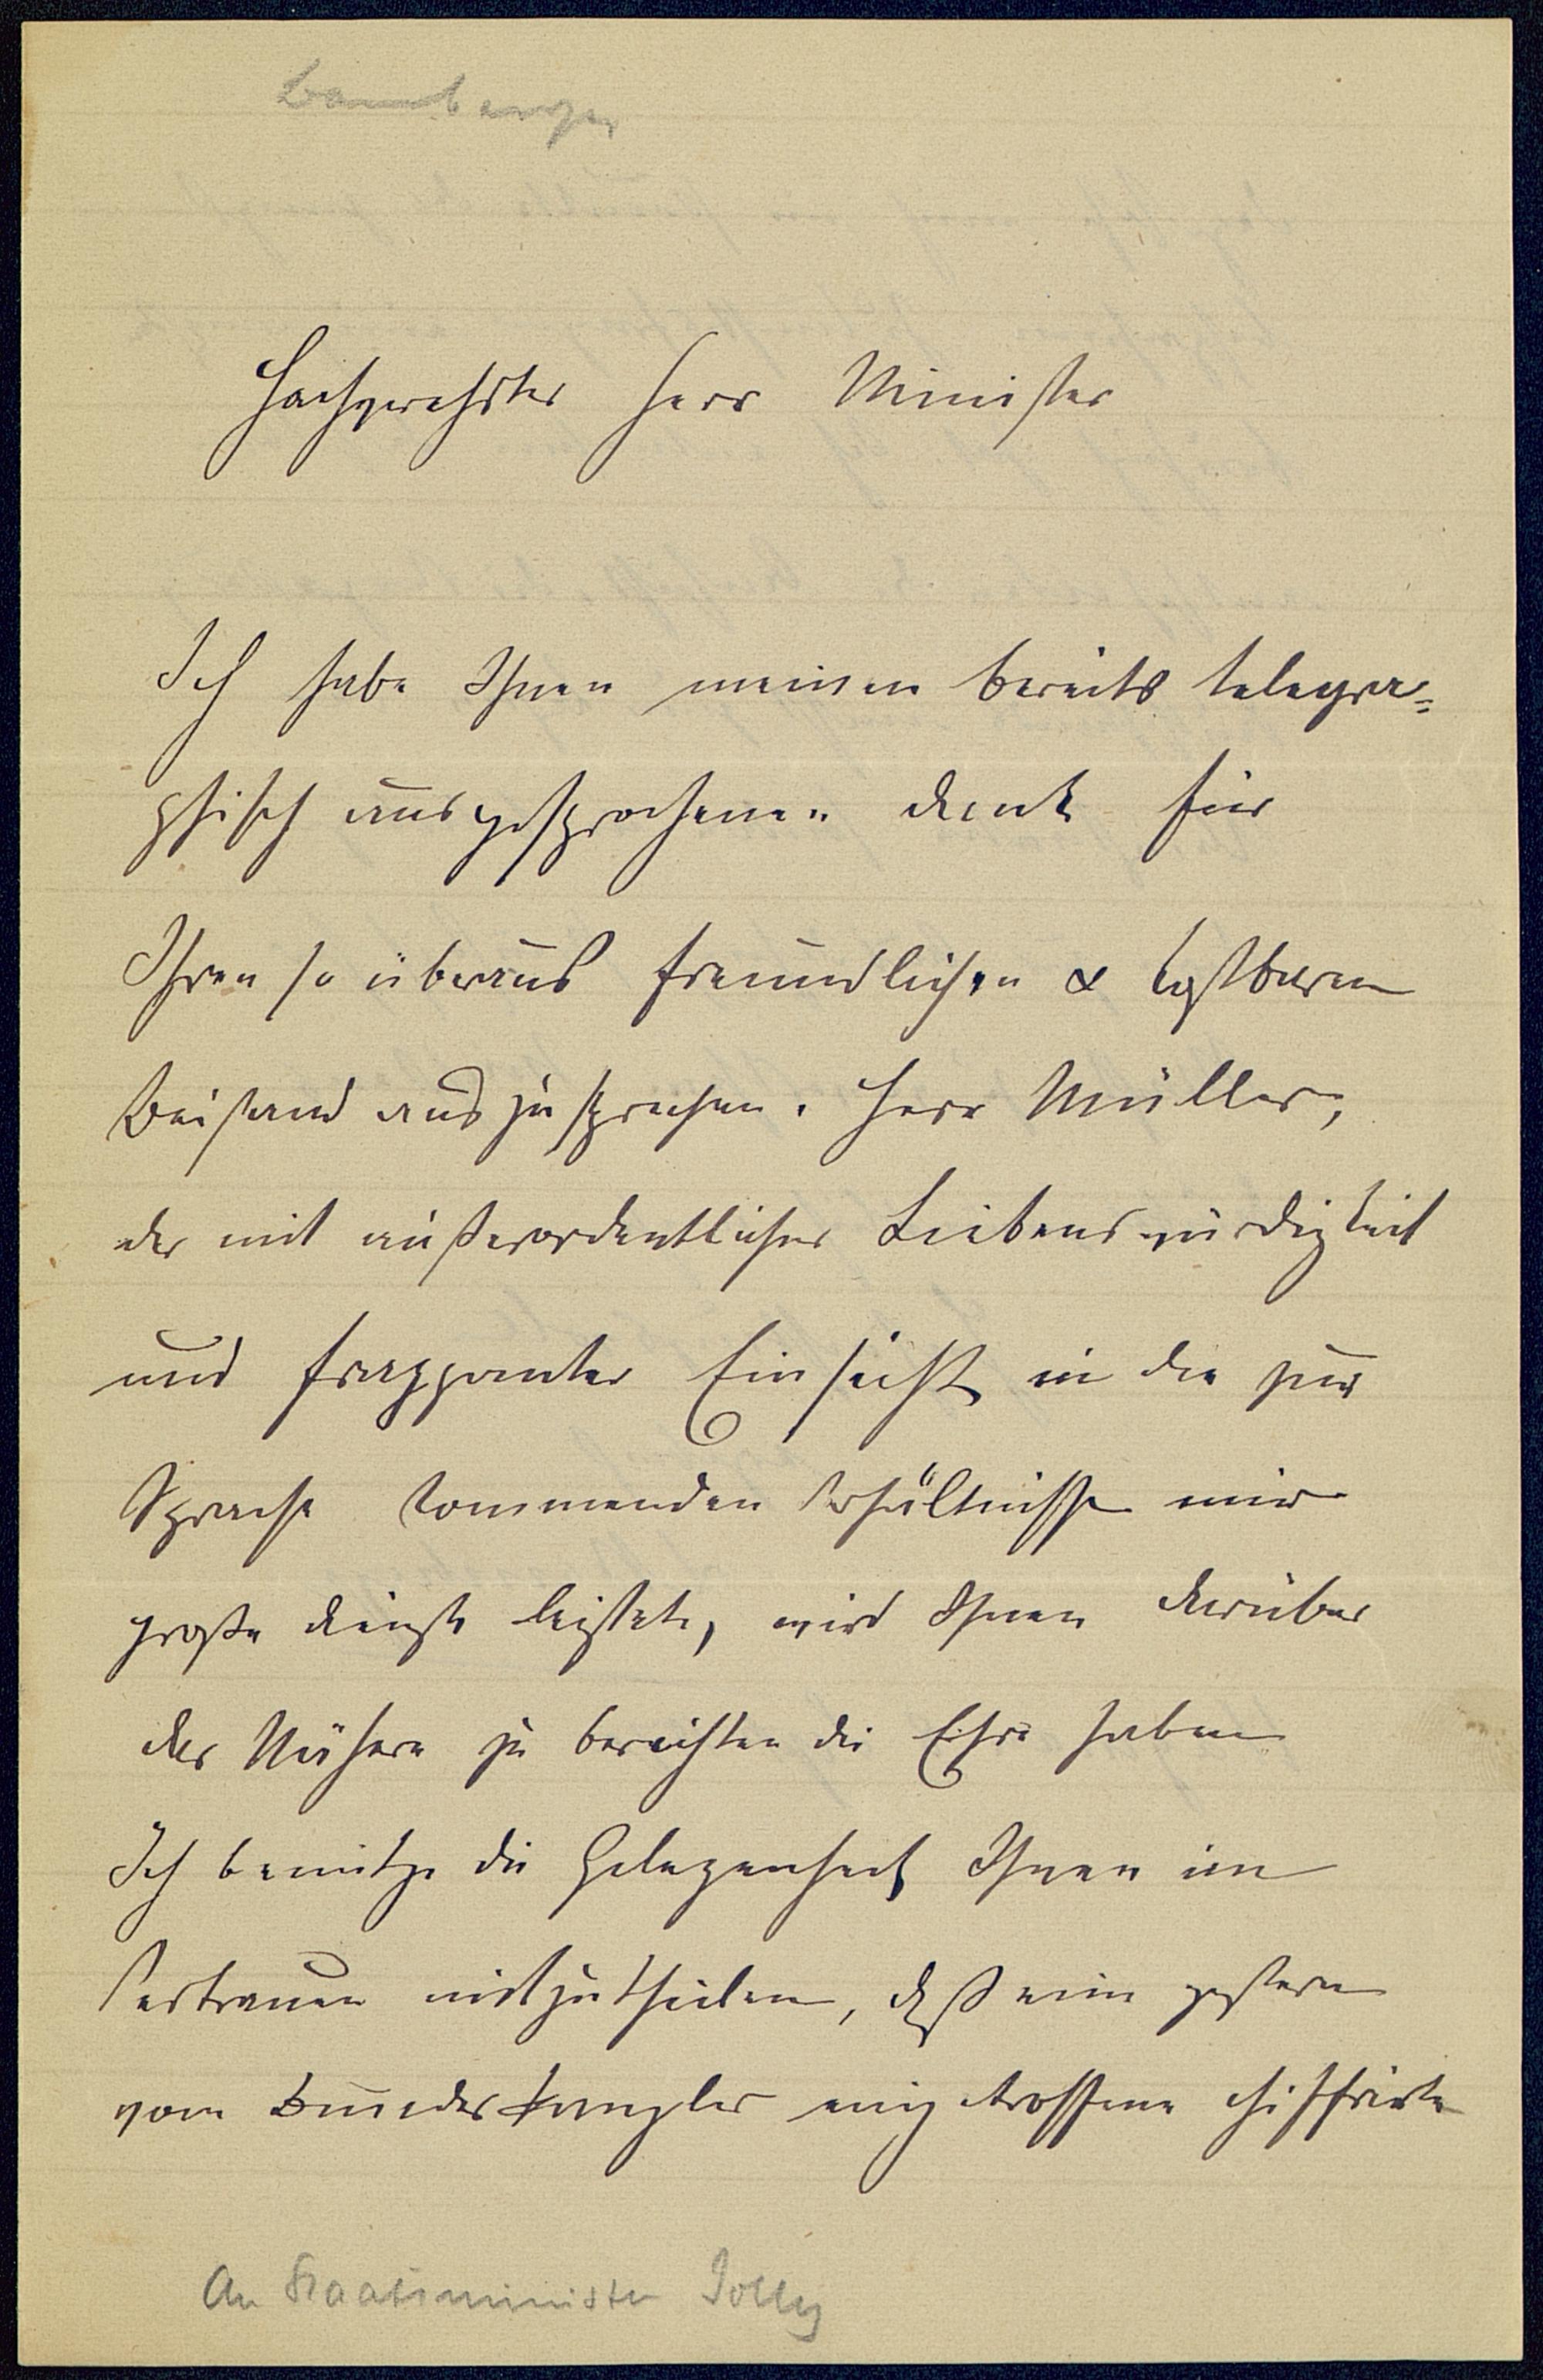 Bamberger
Hochgeehrter Herr Minister
Ich habe Ihnen meinen bereits telegra=
phisch ausgesprochenen Dank für
Ihren so überaus freundlichen & kostbaren
Beistand auszusprechen. Herr Müller,
der mit außerordentlicher Liebenswürdigkeit
und frappanter Einsicht in die zur
Sprache kommenden Verhältnisse mir
große Dienste leistete, wird Ihnen darüber
das Nähere zu berichten die Ehre haben
Ich benütze die Gelegenheit Ihnen im
Vertrauen mitzutheilen, daß eine gestern
vom Bundeskanzler eingetroffene chiffrirte
An Staatsminister Jolly